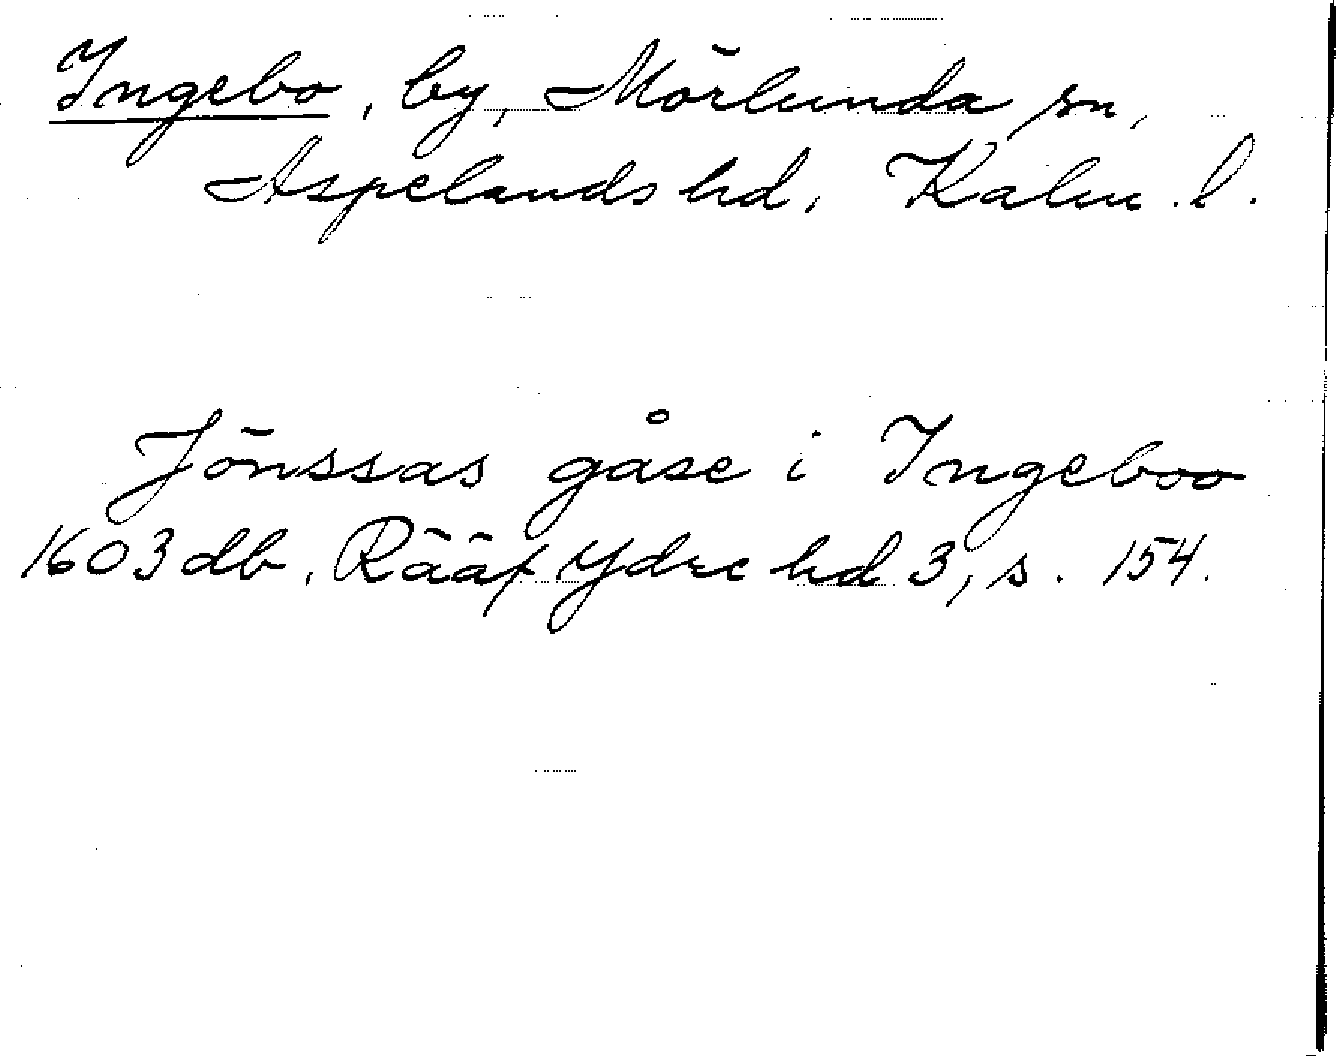 Ingebo, by, Mörlunda sn,
Aspelands hd, Kalm. l.
Jönssas gåse i Ingeboo
1603 db. Rääf Ydre hd 3, s. 154.